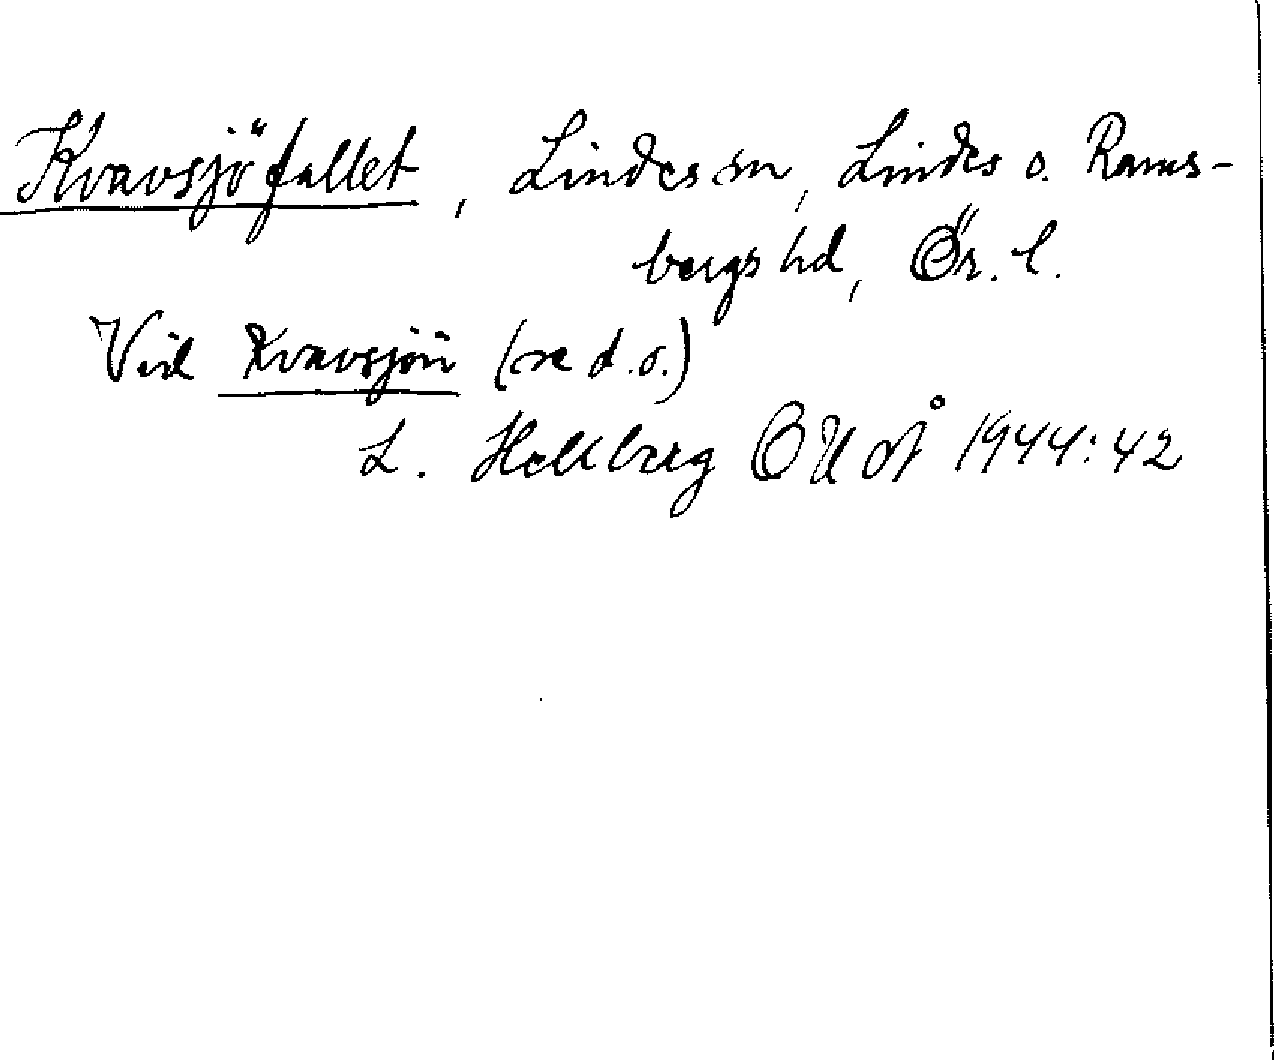 Kvavsjöfallet, Lindes sn, Lindes o. Rams-
bergs hd, Ör. l.
Vid Kvavsjön (se d.o.)
L. Hellberg ÖUoÅ 1944:42